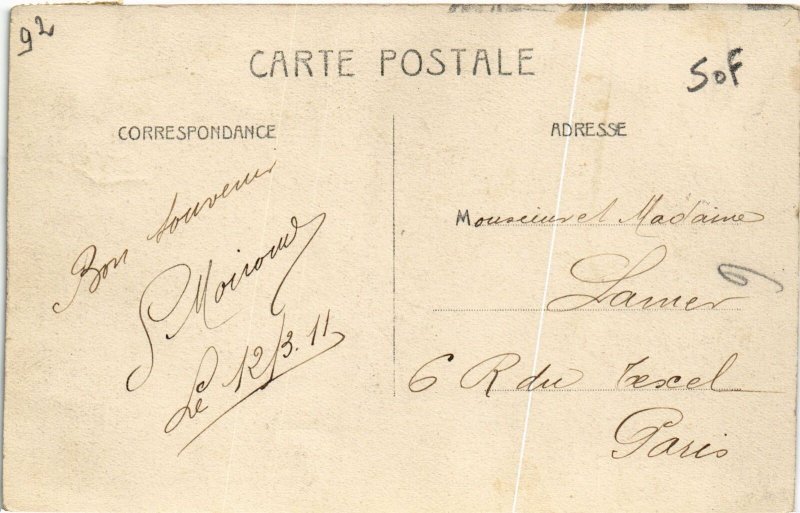 92
CARTE POSTALE
50F
CORRESPONDANCE
Bon souvenir
Le 12/3.11
ADRESSE
Monsieur et Madame
Lamer
6 R du Texel
Paris